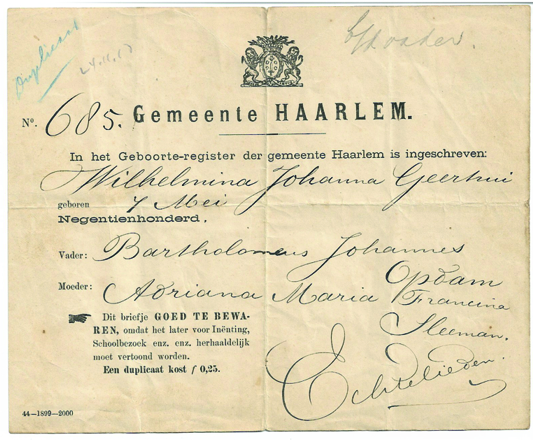 Duplicaat
24.11.17
No. 685. Gemeente HAARLEM.
In het Geboorte-register der gemeente Haarlem is ingeschreven:
Wilhelmina Johanna Geertrui
geboren 7 Mei
Negentienhonderd,
Vader: Bartholomeus Johannes
Opdam
Moeder: Adriana Maria Francina
Sleeman.
Echtelieden.
Dit briefje GOED TE BEWA-
REN, omdat het later voor Inënting,
Schoolbezoek enz. enz. herhaaldelijk
moet vertoond worden.
Een duplicaat kost ƒ 0,25.
44—1899—2000